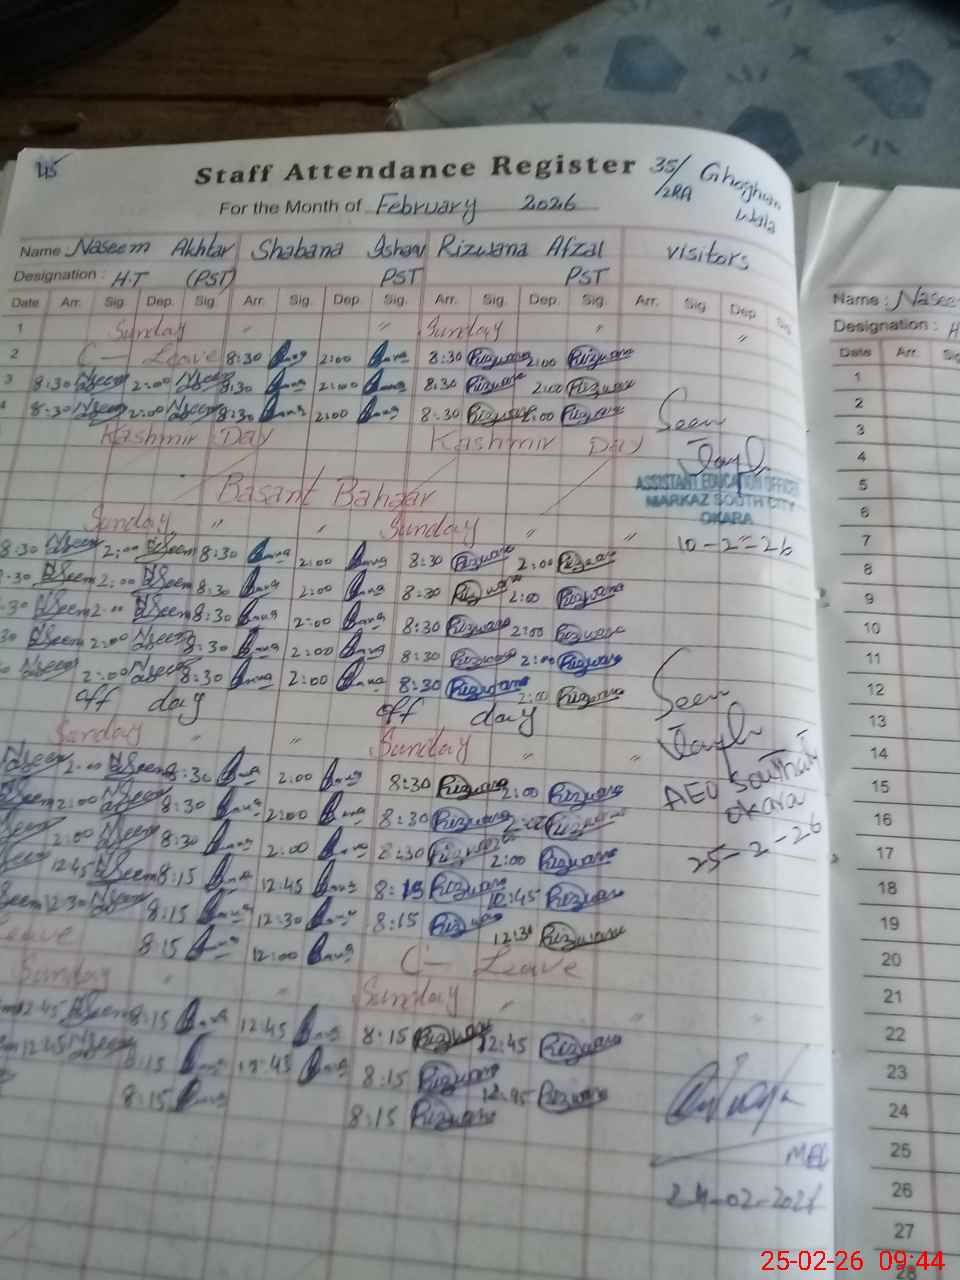 45
Staff Attendance Register 35/2RA Ghoghian Wala
For the Month of February 2026
Name Naseem Akhtar Shabana Ishaq Rizwana Afzal visitors
Designation : H.T (PST) PST PST
Date Arr. Sig. Dep. Sig. Arr. Sig. Dep. Sig. Arr. Sig. Dep. Sig. Arr. Sig Dep. Sig.
1 Sunday " " Sunday " "
2 C- Leave 8:30 2:00 8:30 Rizwana 2:00 Rizwana
3 8:30 Naseem 2:00 Naseem 8:30 2:00 8:30 Rizwana 2:00 Rizwana
4 8:30 Naseem 2:00 Naseem 8:30 2:00 8:30 Rizwana 2:00 Rizwana
Kashmir Day Kashmir Day
Basant Bahaar
Sunday " " Sunday " "
8:30 Naseem 2:00 Naseem 8:30 2:00 8:30 Rizwana 2:00 Rizwana
:30 Naseem 2:00 Naseem 8:30 2:00 8:30 Rizwana 2:00 Rizwana
:30 Naseem 2:00 Naseem 8:30 2:00 8:30 Rizwana 2:00 Rizwana
30 Naseem 2:00 Naseem 8:30 2:00 8:30 Rizwana 2:00 Rizwana
0 Naseem 2:00 Naseem 8:30 2:00 8:30 Rizwana 2:00 Rizwana
off day off day
Sunday " " Sunday " "
Naseem 2:00 Naseem 8:30 2:00 8:30 Rizwana 2:00 Rizwana
Naseem 2:00 Naseem 8:30 2:00 8:30 Rizwana 2:00 Rizwana
2:00 Naseem 8:30 2:00 8:30 Rizwana 2:00 Rizwana
12:45 Naseem 8:15 12:45 8:15 Rizwana 12:45 Rizwana
12:30 Naseem 8:15 12:30 8:15 Rizwana 12:30 Rizwana
Leave 8:15 12:00 C- Leave
Sunday " " Sunday " " "
12:45 Naseem 8:15 12:45 8:15 Rizwana 12:45 Rizwana
12:45 Naseem 8:15 12:45 8:15 Rizwana 12:45 Rizwana
8:15 8:15 Rizwana
Seen
ASSISTANT EDUCATION OFFICER
MARKAZ SOUTH CITY
OKARA
10-2-26
Seen
AEO South city
okara
25-2-26
24-02-2026
Name : Nasee
Designation : H
Date Arr. Sig
1
2
3
4
5
6
7
8
9
10
11
12
13
14
15
16
17
18
19
20
21
22
23
24
25
26
27
28
25-02-26 09:44